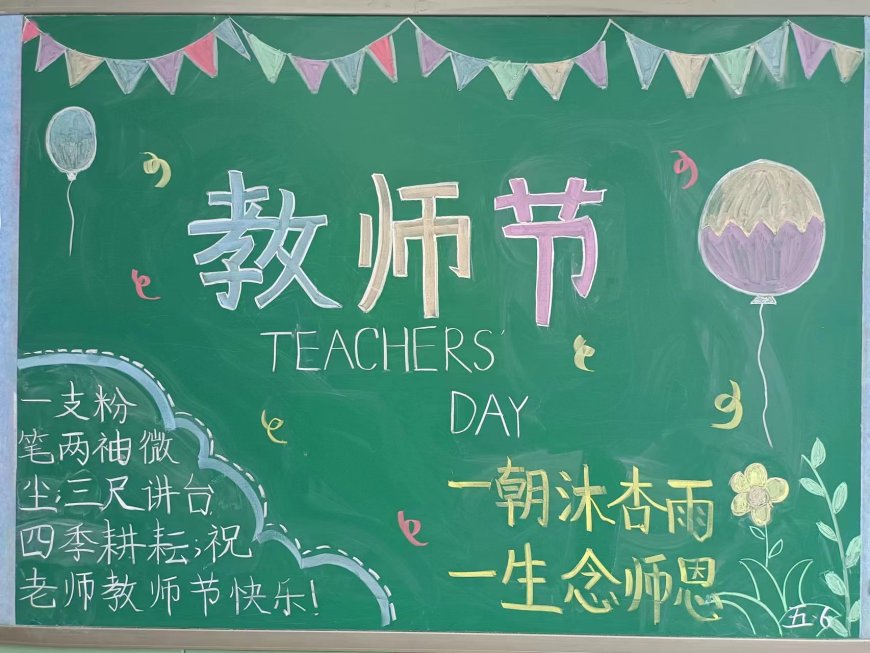 教师节
TEACHERS'
DAY
一支粉
笔两袖微
尘;三尺讲台
四季耕耘;祝
老师教师节快乐!
一朝沐杏雨
一生念师恩
五.6